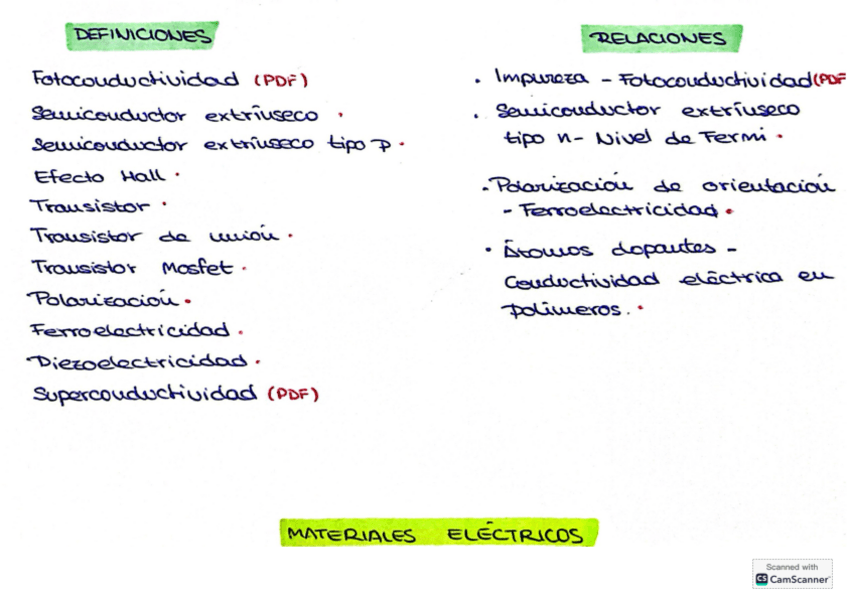 DEFINICIONES
Fotoconductividad (PDF)
Semiconductor extrínseco .
Semiconductor extrínseco tipo P.
Efecto Hall.
Transistor.
Transistor de unión.
Transistor Mosfet.
Polarización.
Ferroelectricidad.
Piezoelectricidad.
Superconductividad (PDF)
RELACIONES
. Impureza - Fotoconductividad (PDF
. Semiconductor extrínseco
tipo n - Nivel de Fermi.
. Polarización de orientación
- Ferroelectricidad.
. Átomos dopantes -
Conductividad eléctrica en
polímeros.
MATERIALES ELÉCTRICOS
Scanned with
CS CamScanner